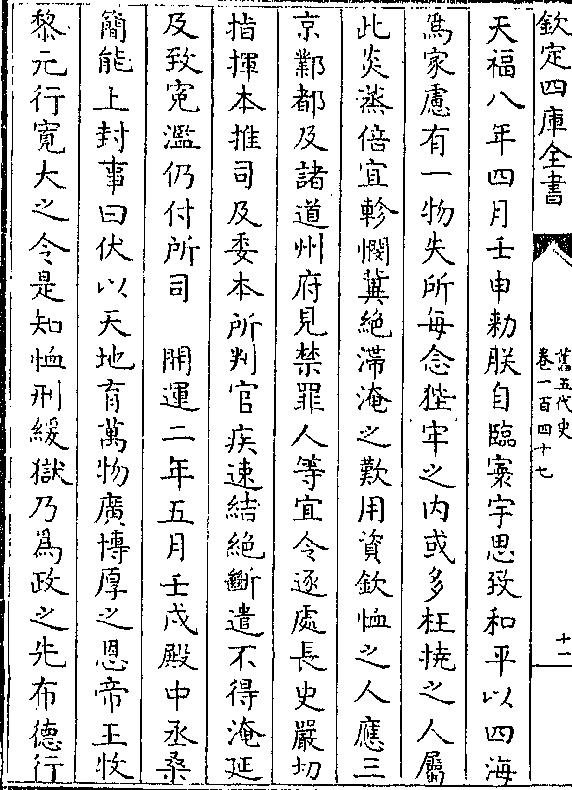 欽定四庫全書
舊五代史
卷一百四十七
十一
天福八年四月壬申勅朕自臨寰宇思致和平以四海
為家慮有一物失所每念狴牢之内或多枉撓之人屬
此炎蒸倍宜軫憫冀絶滯淹之歎用資欽恤之人應三
京鄴都及諸道州府見禁罪人等宜令逐處長史嚴切
指揮本推司及委本所判官疾速結絶斷遣不得淹延
及致寃濫仍付所司　開運二年五月壬戌殿中丞桑
簡能上封事曰伏以天地育萬物廣博厚之恩帝王牧
黎元行寛大之令是知恤刑緩獄乃為政之先布德行